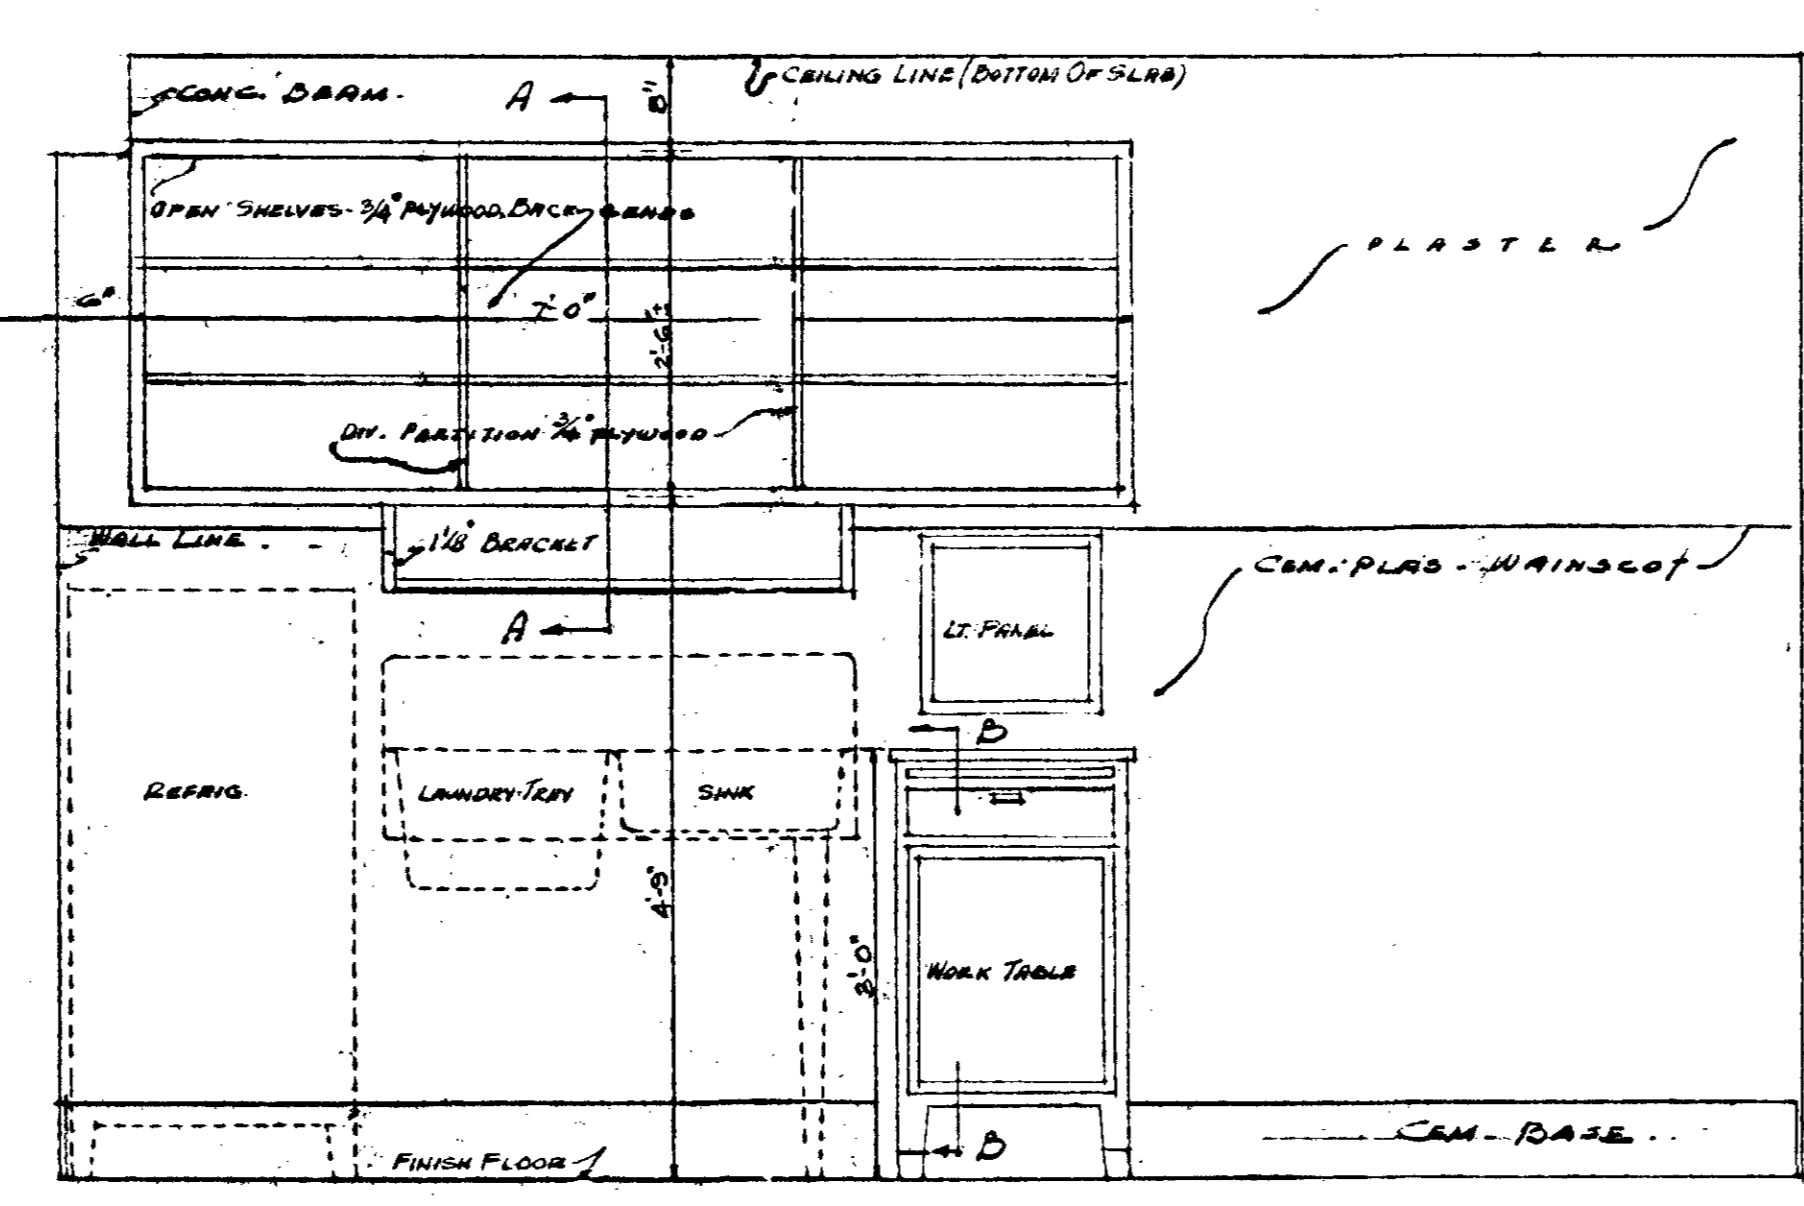 CEILING LINE (BOTTOM OF SLAB)
CONC. BEAM.
A
8"
OPEN SHELVES-3/4" PLYWOOD, BACK & ENDS
PLASTER
6"
7'-0"
2'-6"±
DIV. PARTITION 3/4" PLYWOOD
WALL LINE.
1 1/8" BRACKET
CEM. PLAS. WAINSCOT
A
LT. PANEL
B
REFRIG.
LAUNDRY-TRAY
SINK
4'-9"
3'-0"
WORK TABLE
CEM. BASE.
B
FINISH FLOOR